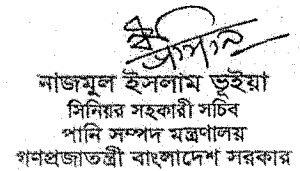 নাজমুল ইসলাম ভূইয়া
সিনিয়র সহকারী সচিব
পানি সম্পদ মন্ত্রণালয়
গণপ্রজাতন্ত্রী বাংলাদেশ সরকার